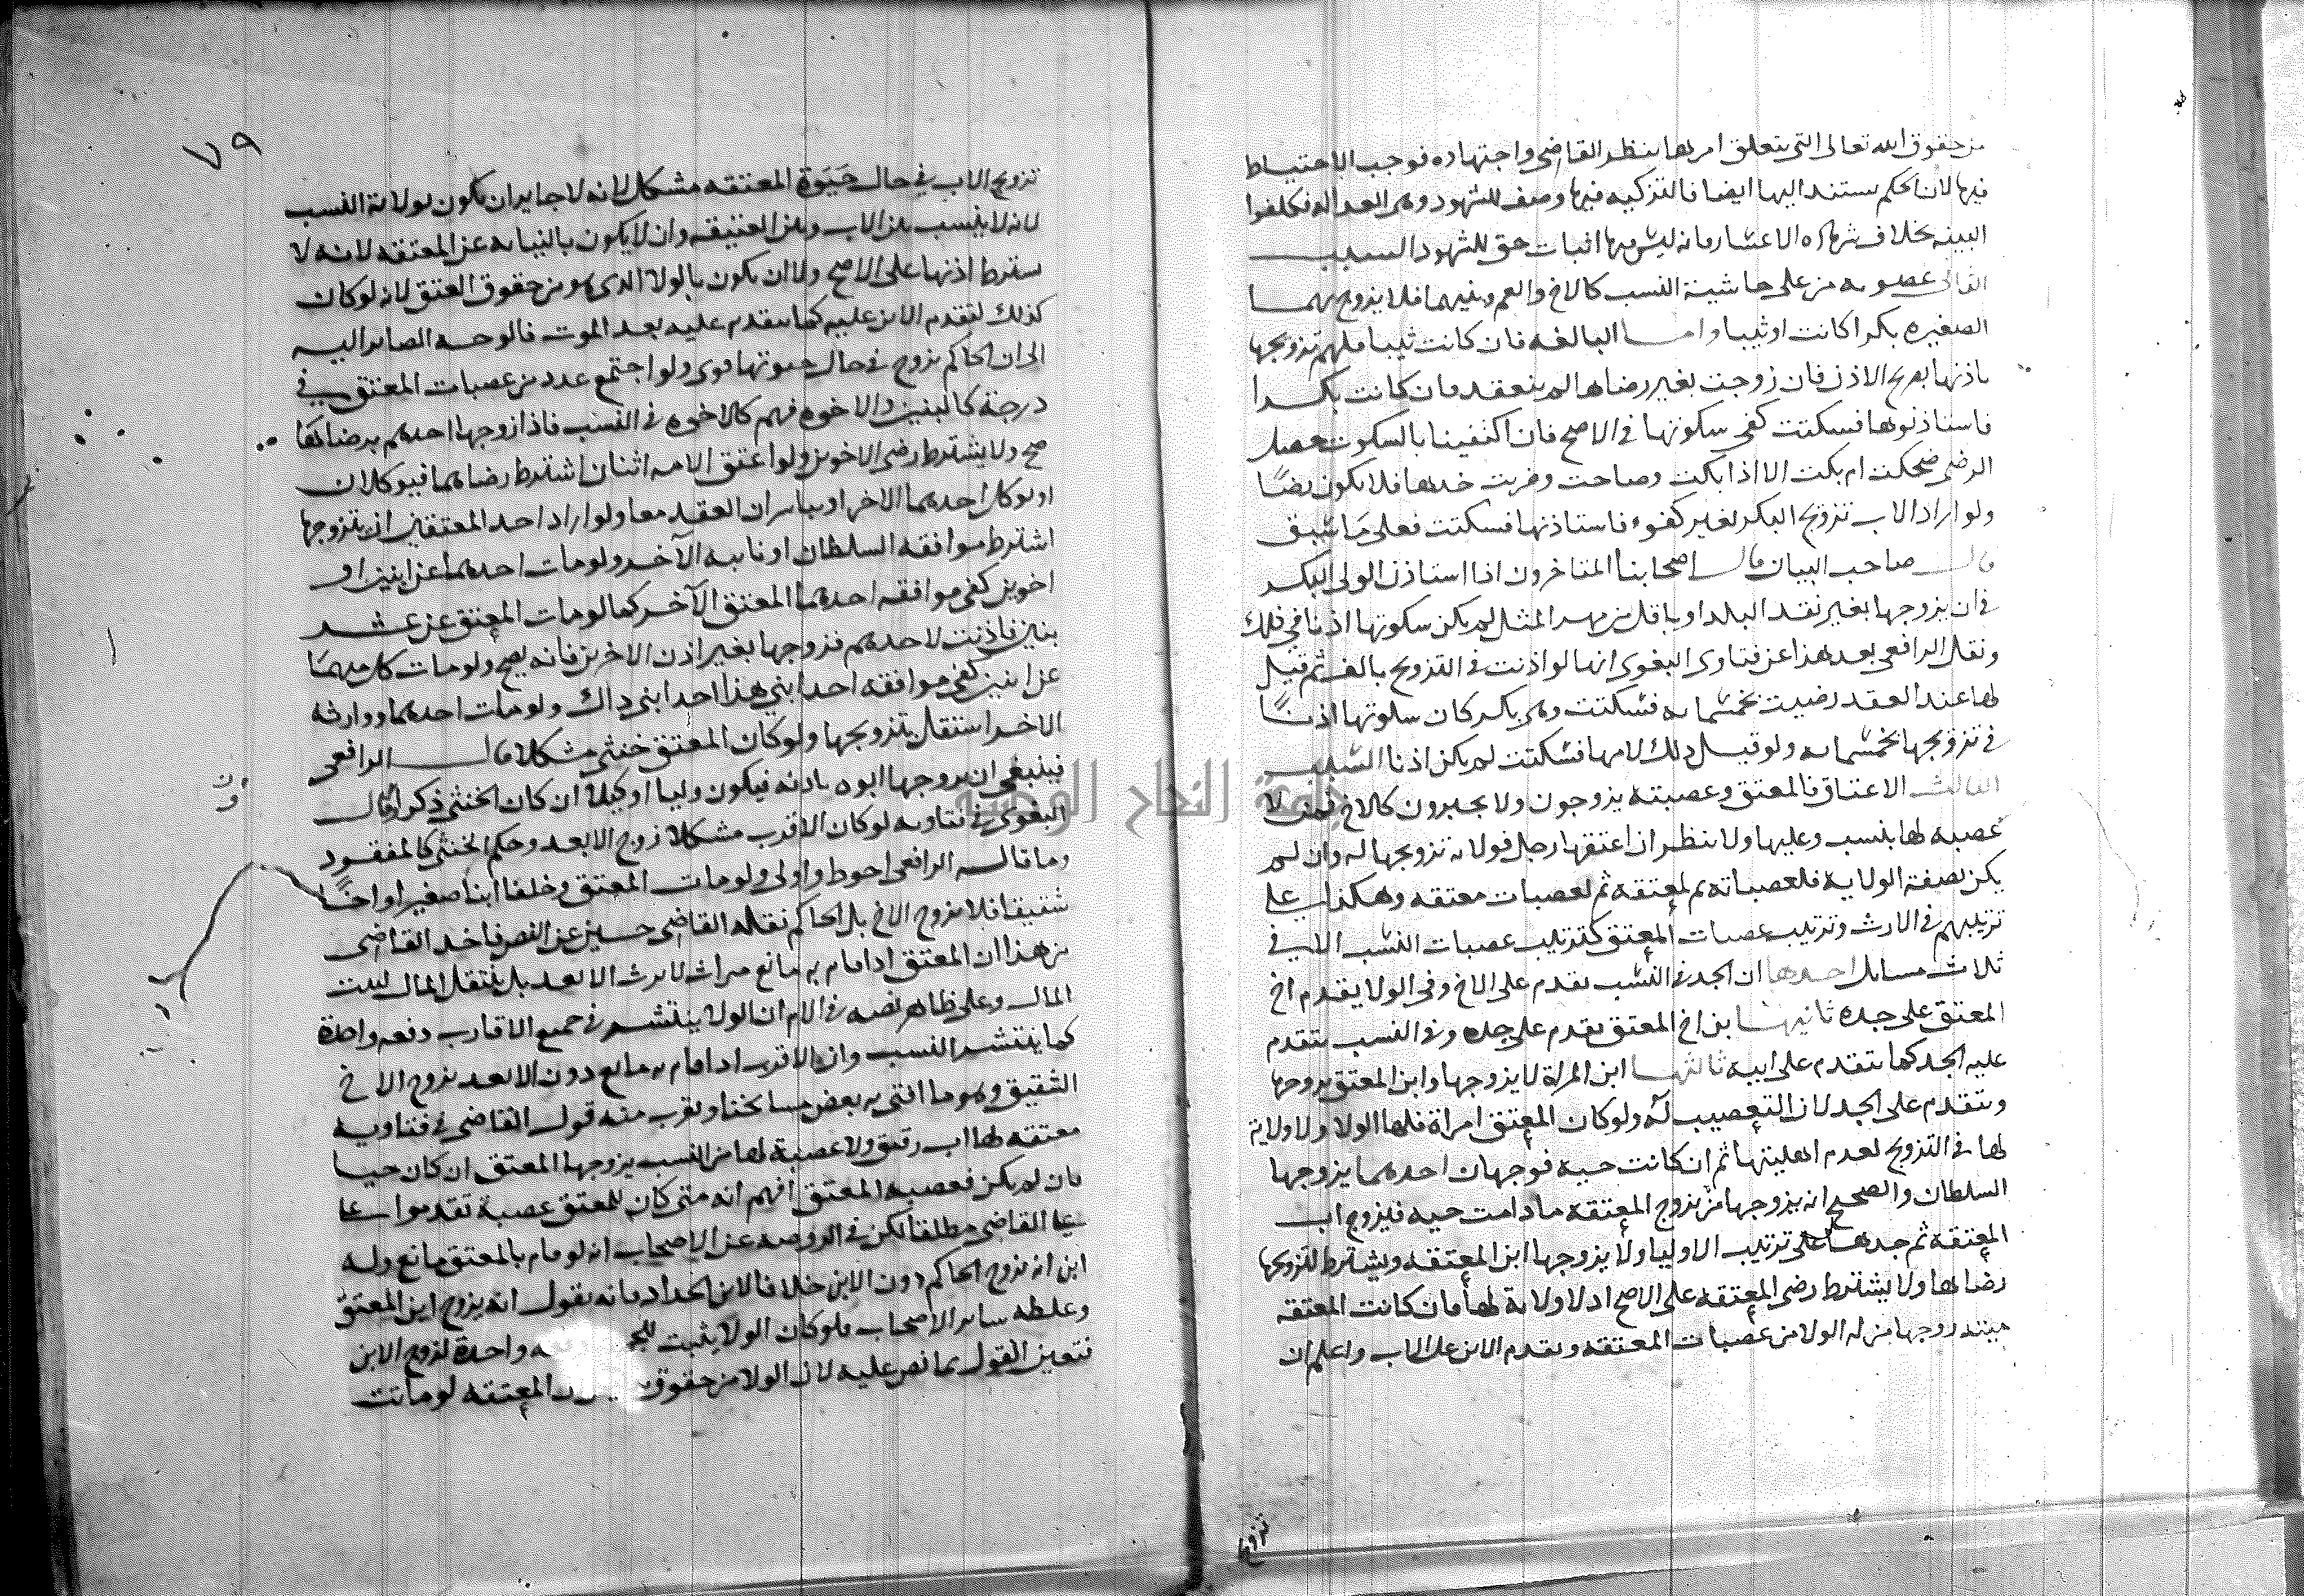 من حقوق الله تعالى التي يتعلق امرها بنظر القاضي واجتهاده فوجب الاحتياط
فيها لان الحكم يستند اليها ايضا فالتزكيه فيها وصف للشهود وهى العداله فكلفوا
البينه بخلاف شهاده الاعشار فانه ليس فيها اثبات حق للشهود السبب
الثاني عصوبه من على حاشية النسب كالاخ والعم وبنيهما فلا يزوج بهما
الصغيره بكرا كانت او ثيبا واما البالغه فان كانت ثيبا فلهم تزويجها
باذنها بصريح الاذن فان زوجت بغير رضاها لم ينعقد وان كانت بكرا
فاستاذنوها فسكتت كفى سكوتها في الاصح فان اكتفينا بالسكوت حصل
الرضى ضحكت ام بكت الا اذا بكت وصاحت وضربت خدها فلا يكون رضًا
ولو اراد الاب تزويج البكر لغير كفوء فاستاذنها فسكتت فعلى ما سبق
قال صاحب البيان قال اصحابنا المتاخرون اذا استاذن الولى البكر
في ان يزوجها بغير نقد البلد او باقل من مهر المثل لم يكن سكوتها اذنا في ذلك
ونقل الرافعي بعد هذا عن فتاوى البغوى انها لو اذنت في التزويج بالف ثم قيل
لها عند العقد رضيت بخمسمايه فسكتت وهى بكر كان سكوتها اذنًا
في تزويجها بخمسمايه ولو قيل ذلك لامها فسكتت لم يكن اذنا السبب
الثالث الاعتاق فالمعتق وعصبته يزوجون ولا يجبرون كالاخ فمن لا
عصبه لها بنسب وعليها ولا ينظر ان اعتقها رجل فولاية تزويجها له وان لم
يكن بصفة الولاية فلعصباته ثم لمعتقه ثم لعصبات معتقه وهكذا على
ترتيبهم في الارث وترتيب عصبات المعتق كترتيب عصبات النسب الا في
ثلاث مسايل احدها ان الجد في النسب يقدم على الاخ وفي الولا يقدم اخ
المعتق على جده ثانيها ابن اخ المعتق يقدم على جده وفي النسب يتقدم
عليه الجد كما يتقدم على ابيه ثالثها ابن المراة لا يزوجها وابن المعتق يزوجها
ويتقدم على الجد لان التعصيب له ولو كان المعتق امراة فلها الولا ولا ولاية
لها في التزويج لعدم اهليتها ثم ان كانت حيه فوجهان احدهما يزوجها
السلطان والصحيح انه يزوجها من يزوج المعتقه ما دامت حيه فيزوج اب
المعتقه ثم جدها على ترتيب الاوليا ولا يزوجها ابن المعتقه ويشترط لتزويجها
رضاها ولا يشترط رضى المعتقه على الاصح اذ لا ولاية لها فان كانت المعتقه
ميته زوجها من له الولا من عصبات المعتقه ويقدم الابن على الاب واعلم ان
تزويج
٧٩
تزويج الاب في حال حيوة المعتقه مشكل لانه لا جايز ان يكون لولاية النسب
لانه لا نسب بين الاب وبين العتيقه وان لا يكون بالنيابه عن المعتقه لانه لا
يشترط اذنها على الاصح ولا ان يكون بالولا الذى هو من حقوق العتق لانه لو كان
كذلك لتقدم الابن عليه كما يتقدم عليه بعد الموت فالوجه الصاير اليه
الى ان الحاكم يزوج في حال حيوتها قوى ولو اجتمع عدد من عصبات المعتق في
درجة كالبنين والاخوه فهم كالاخوه في النسب فاذا زوجها احدهم برضاها
صح ولا يشترط رضى الاخرين ولو اعتق الامه اثنان اشترط رضاهما فيوكلان
او يوكل احدهما الاخر او يباشران العقد معا ولو اراد احد المعتقين ان يتزوجها
اشترط موافقه السلطان او نايبه الآخر ولو مات احدهما عن ابنين او
اخوين كفى موافقه احدهما المعتق الآخر كما لو مات المعتق عن عشر
بنين فاذنت لاحدهم فزوجها بغير اذن الاخرين فانه يصح ولو مات كل منهما
عن ابنين كفى موافقه احد ابني هذا احد ابني ذاك ولو مات احدهما ووارثه
الاخر استقل بتزويجها ولو كان المعتق خنثى مشكلا قال الرافعى
فينبغي ان يزوجها ابوه باذنه فيكون وليا او وكيلا ان كان الخنثى ذكرا وقال
البغوى في فتاويه لو كان الاقرب مشكلا زوج الابعد وحكم الخنثى كالمفقود
وما قاله الرافعى احوط واولى ولو مات المعتق وخلف ابنا صغيرا او اخًا
شقيقا فلا يزوج الاخ بل الحاكم نقله القاضي حسين عن النص فاخذ القاضى
من هذا ان المعتق اذا قام به مانع ميراث لا يرث الابعد بل ينتقل المال لبيت
المال وعلى ظاهر نصه في الام ان الولا ينتشر في جميع الاقارب دفعه واحدة
كما ينتشر النسب وان الاقرب اذا قام به مانع دون الابعد يزوج الاخ
الشقيق وهو ما افتى به بعض مشايخنا ويقرب منه قول القاضى في فتاويه
معتقه لها اب رقيق ولا عصبة لها من النسب يزوجها المعتق ان كان حيا
فان لم يكن فعصبه المعتق افهم انه متى كان للمعتق عصبة تقدموا على
على القاضى مطلقا لكن في الروضه عن الاصحاب انه لو قام بالمعتق مانع وله
ابن انه يزوج الحاكم دون الابن خلافا لابن الحداد فانه يقول انه يزوج ابن المعتق
وغلطه ساير الاصحاب فلو كان الولا يثبت واحدة لزوج الابن
فتعين القول بما نص عليه لان الولا من حقوق المعتقه لو ماتت